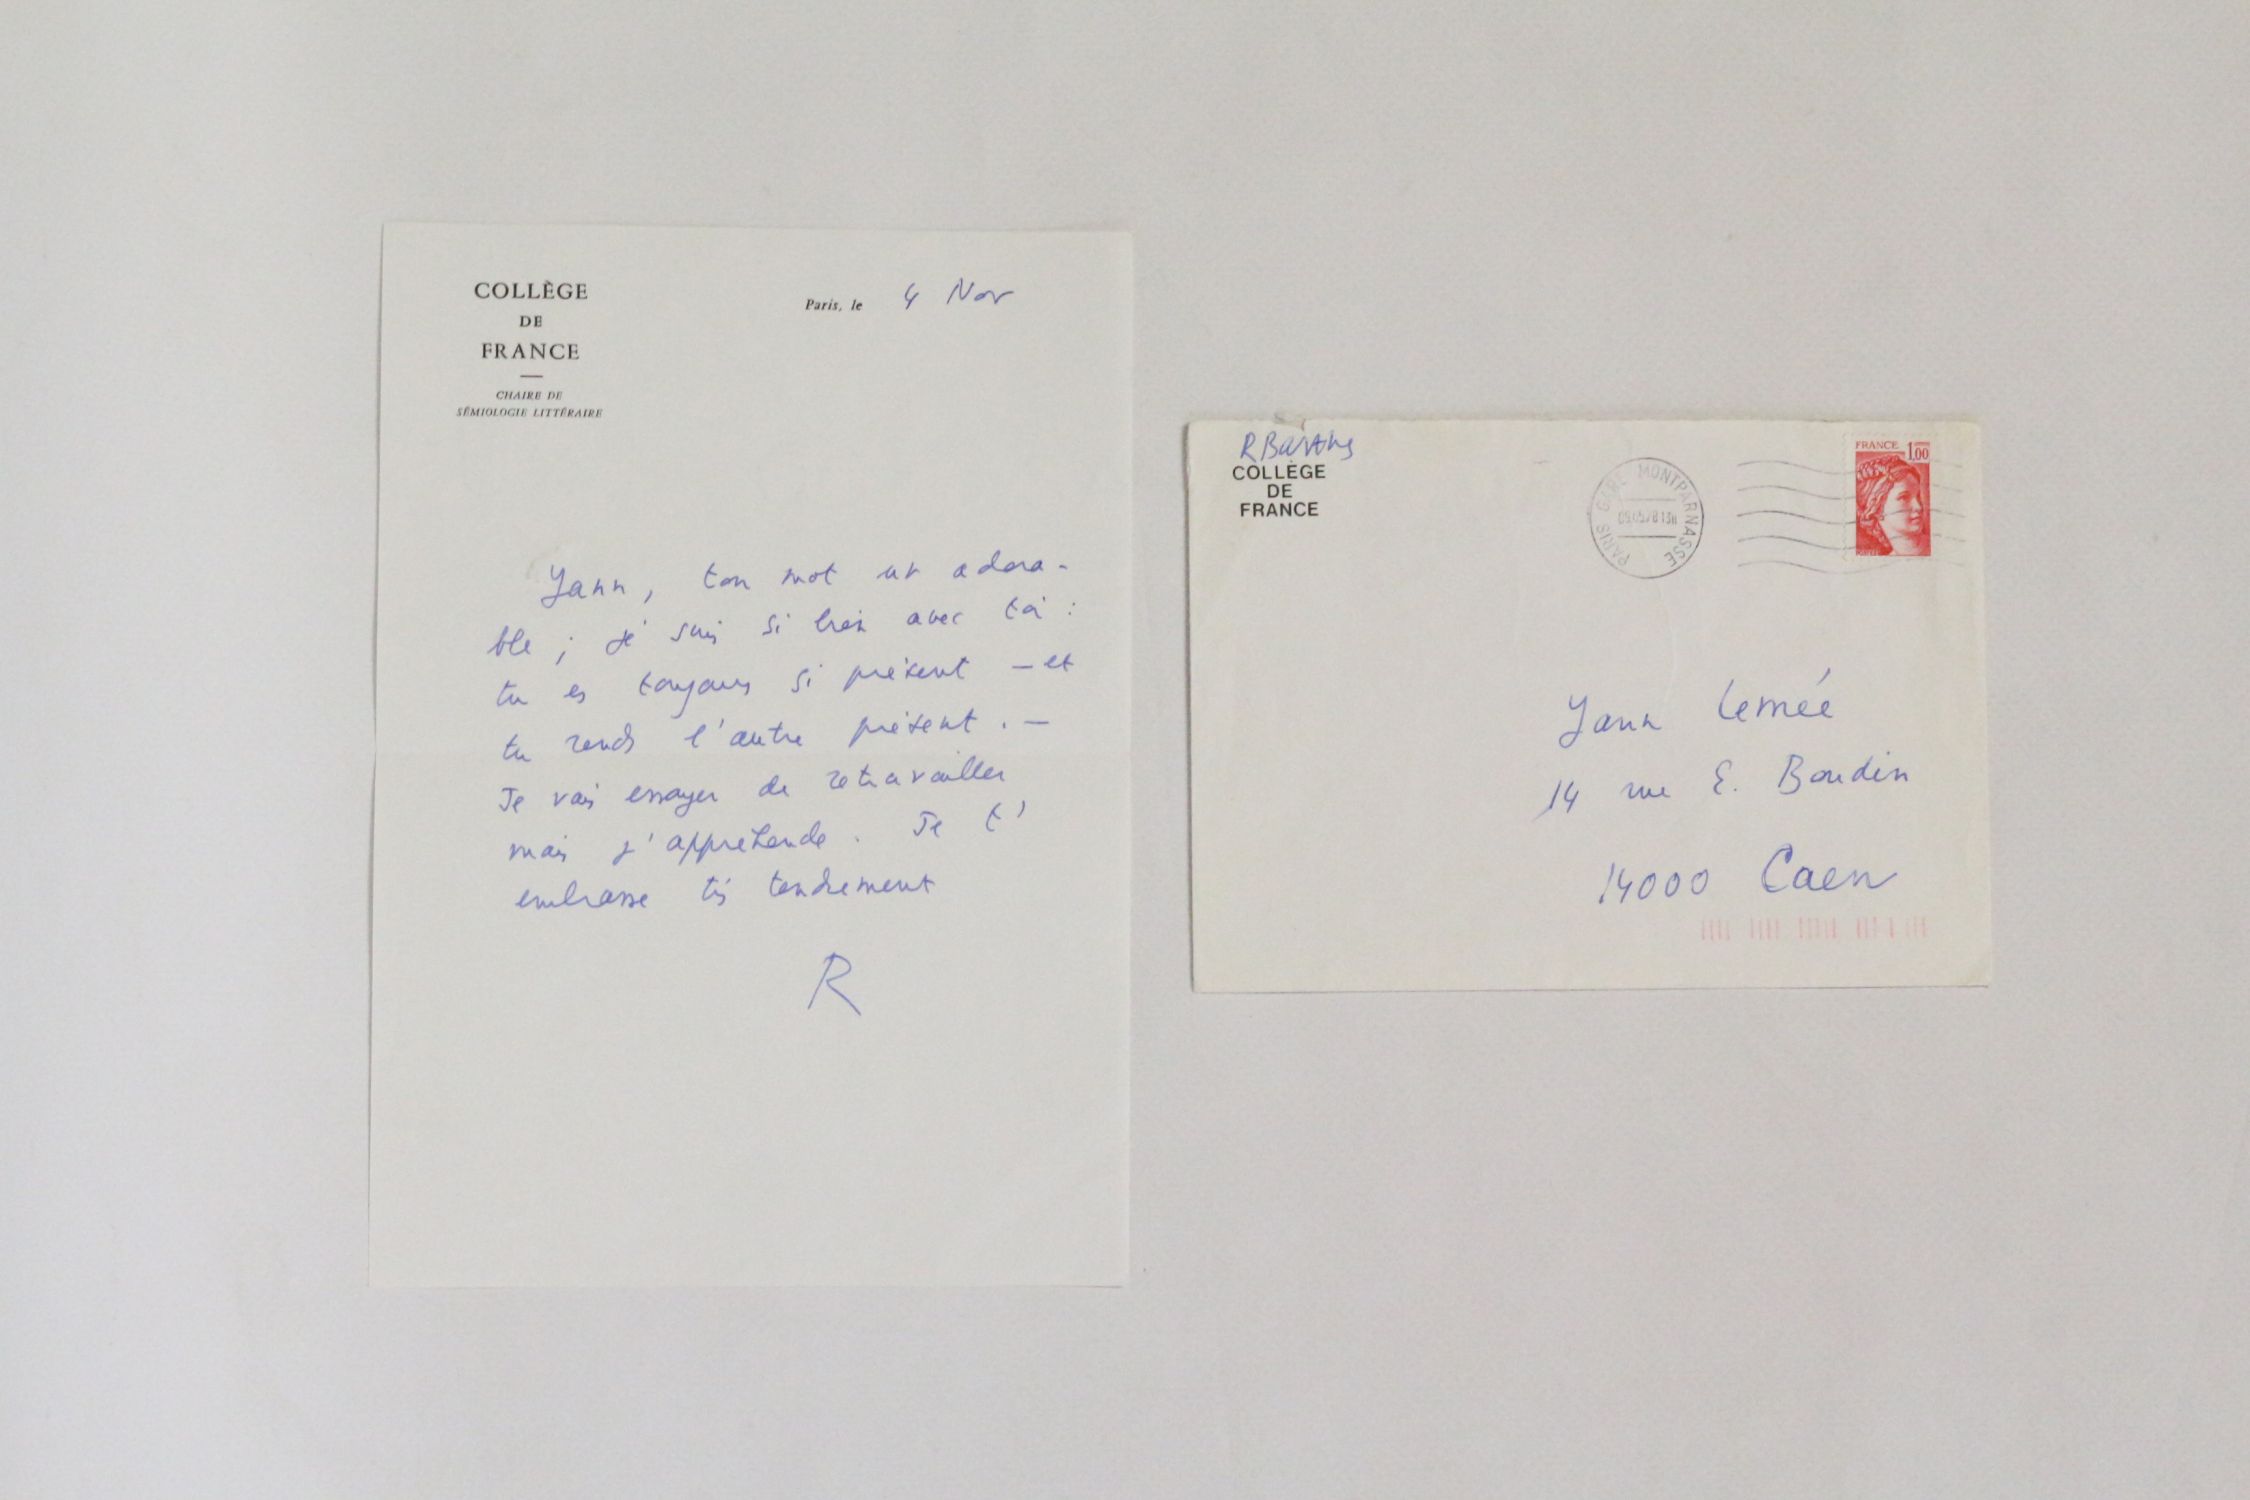 COLLÈGE
DE
FRANCE
CHAIRE DE
SÉMIOLOGIE LITTÉRAIRE
Paris, le 4 Nov
Yann, ton mot est adora-
ble ; je suis si bien avec toi :
tu es toujours si présent – et
tu rends l'autre présent. –
Je vais essayer de retravailler
mais j'appréhende. Je t'
embrasse très tendrement
R
R Barthes
COLLÈGE
DE
FRANCE
PARIS GARE MONTPARNASSE
FRANCE 1,00
Yann Lemée
14 rue E. Boudin
14000 Caen